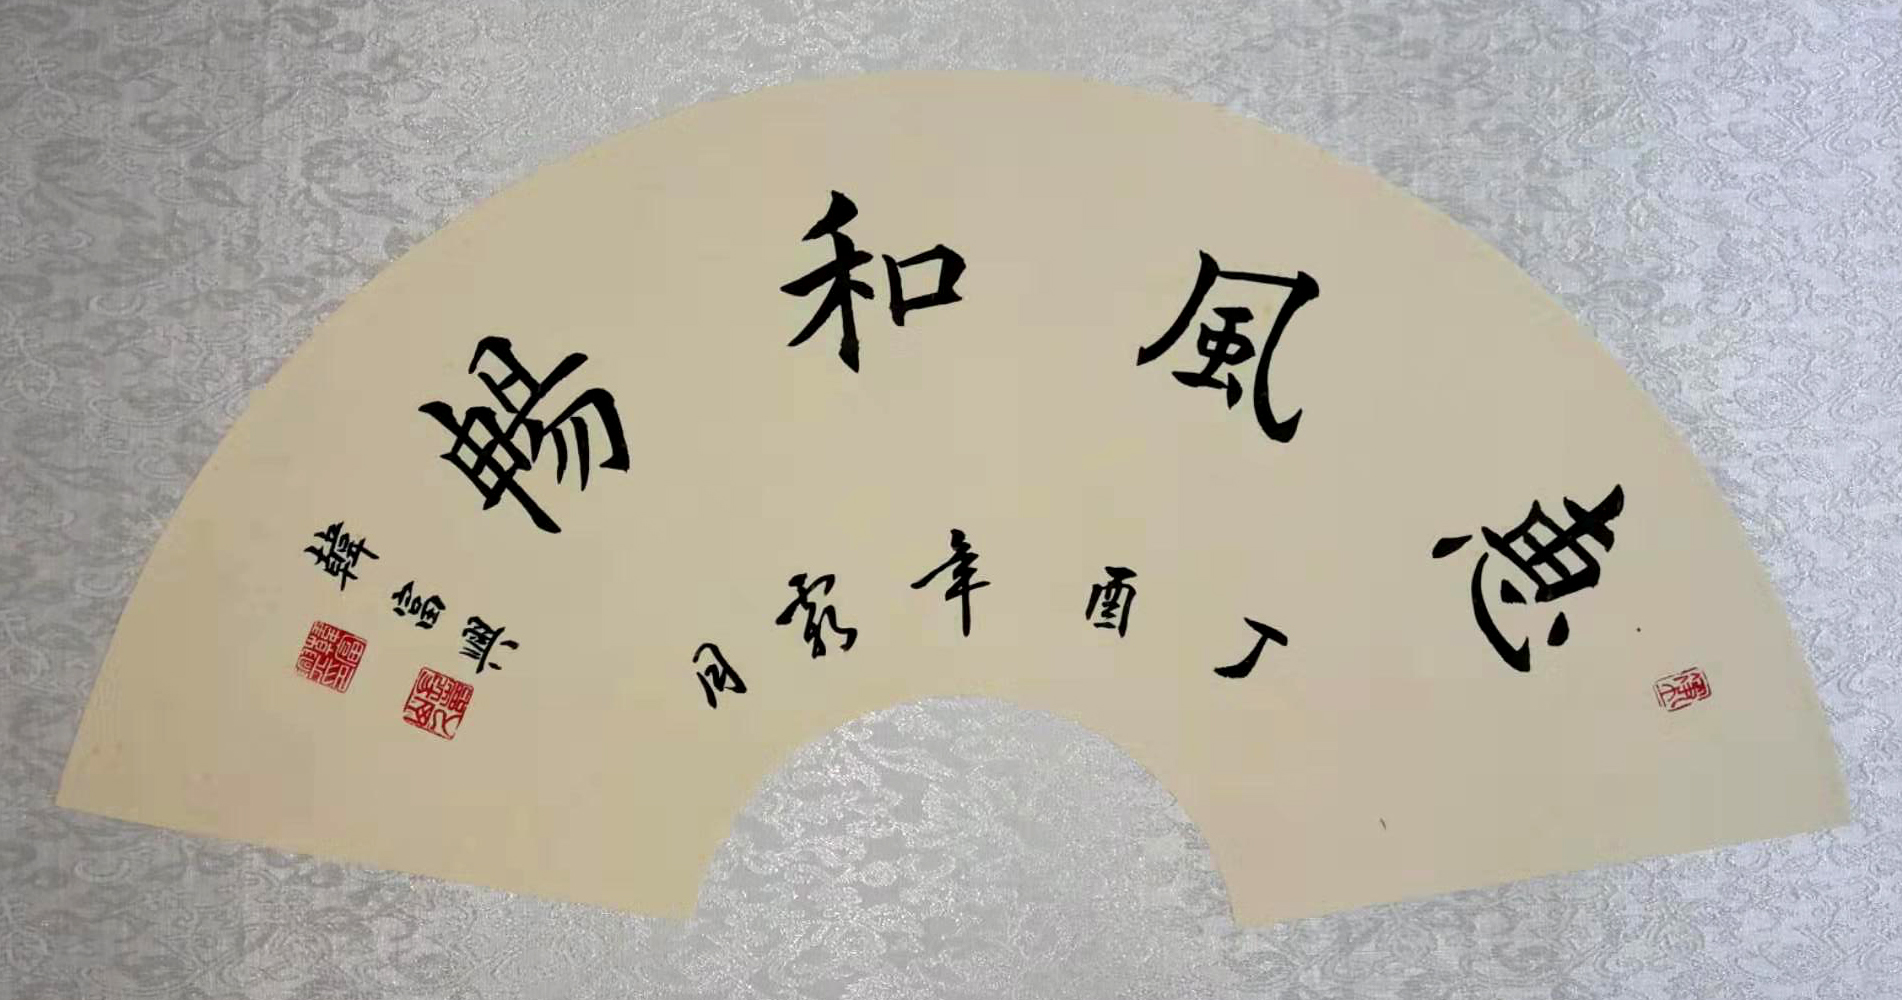 惠風和暢
丁酉年
月
韓富